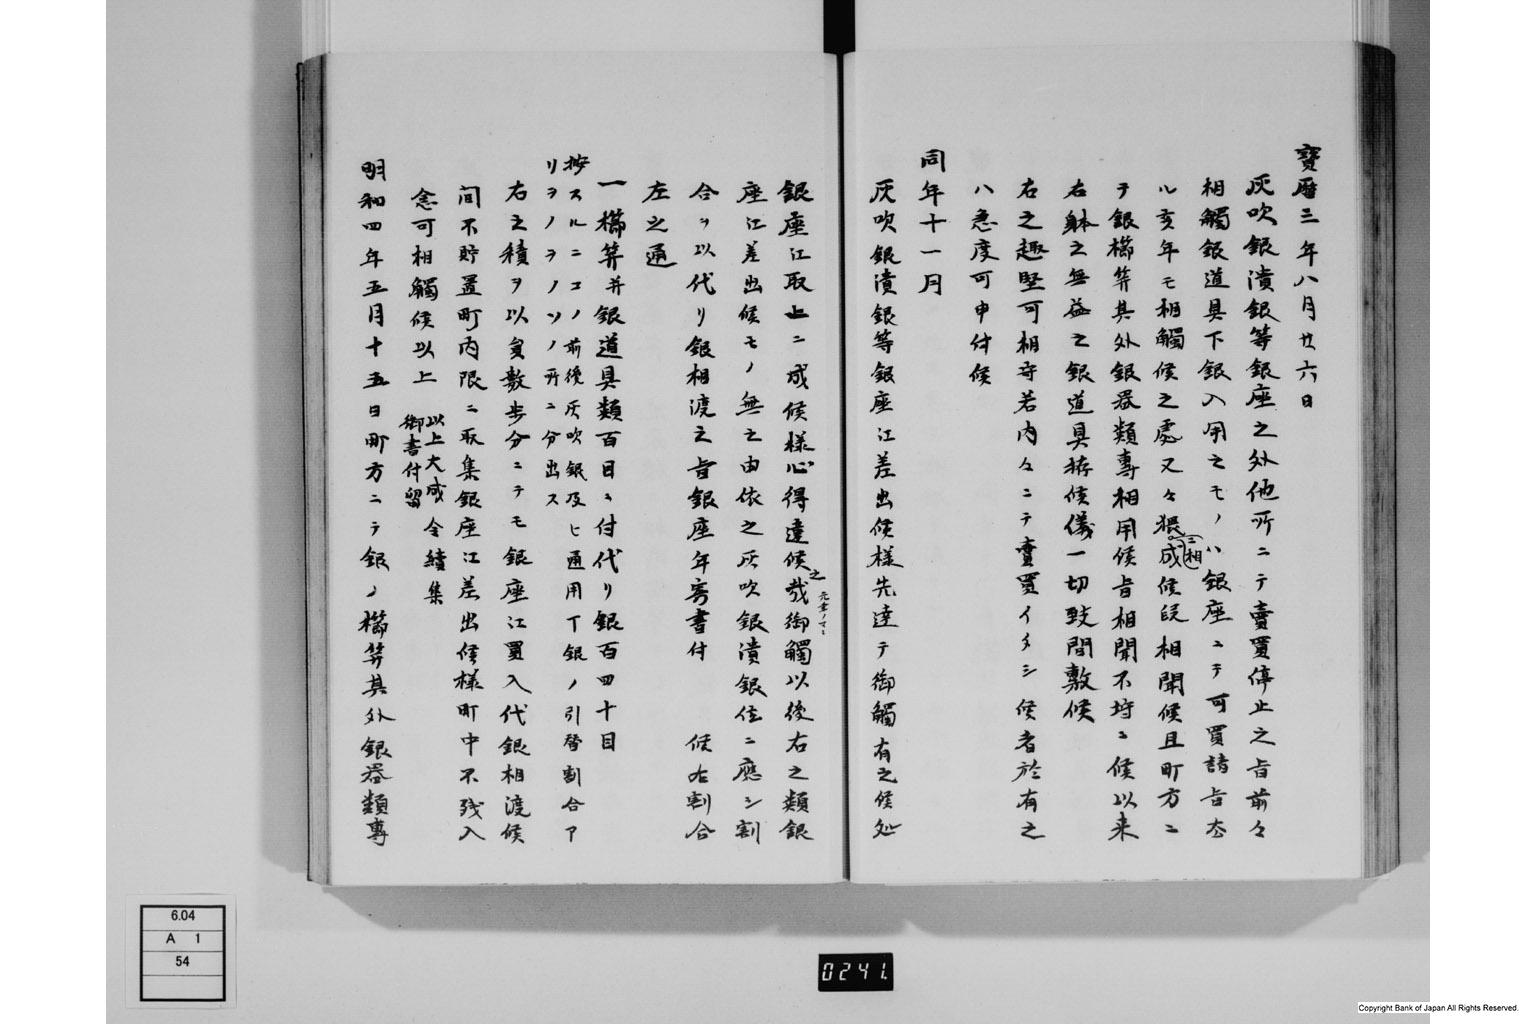 寳曆三年八月廿六日
灰吹銀潰銀等銀座之外他所ニテ賣買停止之旨前々
相觸銀道具下銀入用之モノハ銀座ニテ可買請旨去
ル亥年モ相觸候之處又々猥ニ相成候段相聞候且町方ニ
ヲ銀櫛笄其外銀器類專相用候旨相聞不埒ニ候以来
右躰之無益之銀道具拵候儀一切致間敷候
右之趣堅可相守若内々ニテ賣買イタシ候者於有之
ハ急度可申付候
同年十一月
灰吹銀潰銀等銀座江差出候様先達テ御觸有之候処
銀座江取上ニ成候様心得違候之哉御觸以後右之類銀
元書ノマヽ
座江差出候モノ無之由依之灰吹銀潰銀位ニ應シ割
合ヲ以代リ銀相渡之旨銀座年寄書付 候右割合
左之通
一櫛笄并銀道具類百目ニ付代リ銀百四十目
按スルニコノ前後灰吹銀及ヒ通用丁銀ノ引替割合ア
リヲノヲノソノ所ニ分出ス
右之積ヲ以貟數歩分ニテモ銀座江買入代銀相渡候
間不貯置町内限ニ取集銀座江差出候様町中不残入
念可相觸候以上
以上大成令續集
御書付留
明和四年五月十五日町方ニテ銀ノ櫛笄其外銀器類專
6.04
A 1
54
0241.
Copyright Bank of Japan All Rights Reserved.